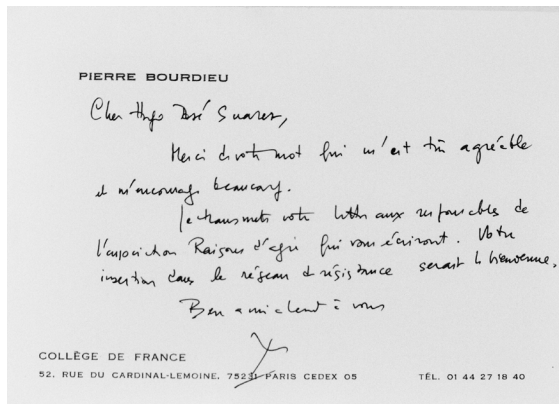 PIERRE BOURDIEU
Cher Hugo José Suarez,
Merci de votre mot qui m'est très agréable
et m'encourage beaucoup.
Je transmets votre lettre aux responsables de
l'association Raisons d'agir qui vous écriront. Votre
insertion dans le réseau de résistance serait la bienvenue.
Bien amicalement à vous
COLLÈGE DE FRANCE
52, RUE DU CARDINAL-LEMOINE, 75231 PARIS CEDEX 05 TÉL. 01 44 27 18 40